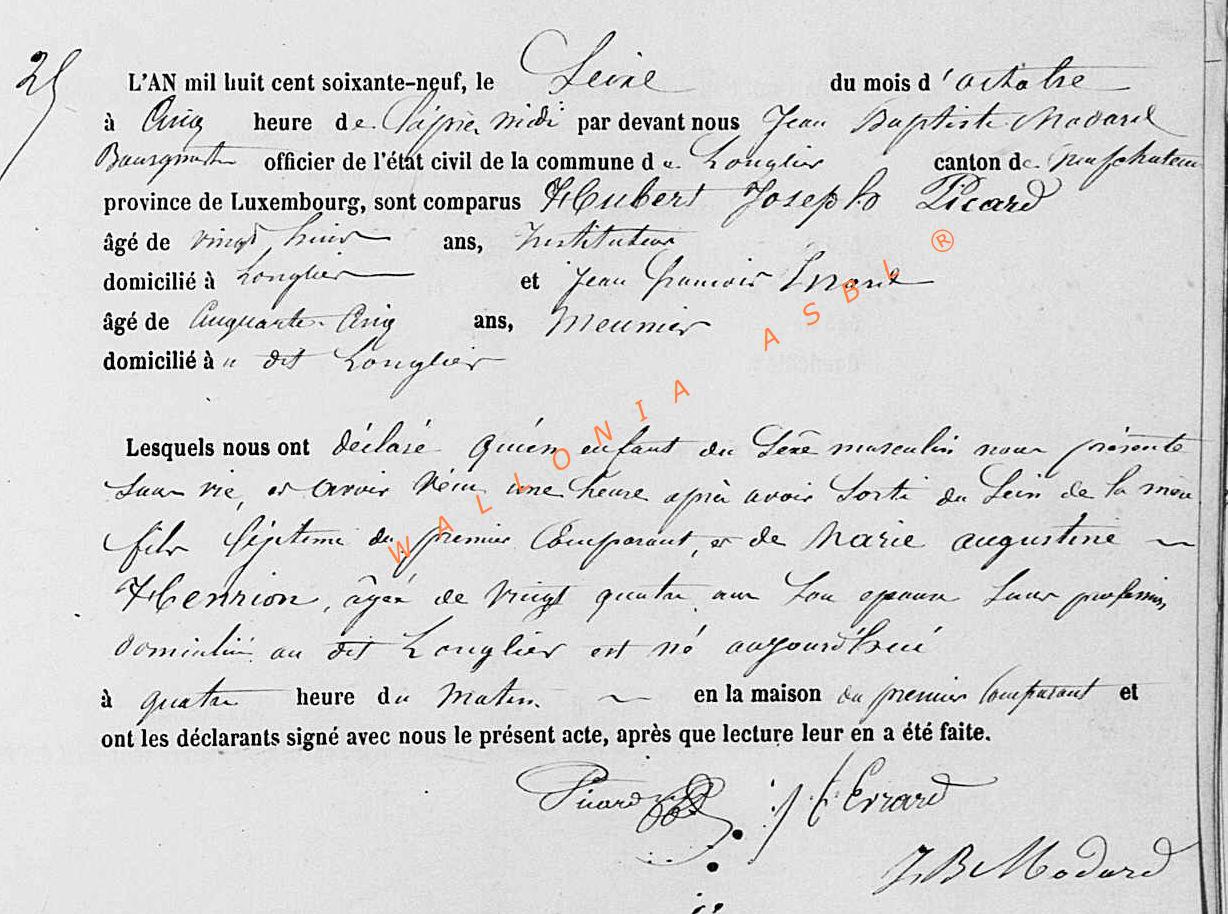 25
L'AN mil huit cent soixante-neuf, le Seize du mois d'octobre
à Cinq heure de l'après midi par devant nous Jean Baptiste Modard
Bourgmestre officier de l'état civil de la commune de Longlier canton de neufchateau
province de Luxembourg, sont comparus Hubert Joseph Picard
âgé de vingt huit ans, Instituteur
domicilié à Longlier et Jean francois Errard
âgé de Cinquante Cinq ans, Meunier
domicilié à u dit Longlier
Lesquels nous ont déclaré qu'un enfant du Sexe masculin nous présenté
sans vie, et avoir vécu une heure après avoir sorti du Sein de la mère
fils légitime du premier Comparant, et de Marie augustine
Henrion, âgée de vingt quatre ans Son epouse Sans profession,
domiciliée au dit Longlier est né aujourd'hui
à quatre heure du Matin en la maison du premier Comparant et
ont les déclarants signé avec nous le présent acte, après que lecture leur en a été faite.
Picard J f Errard
J B Modard
WALLONIA ASBL ®